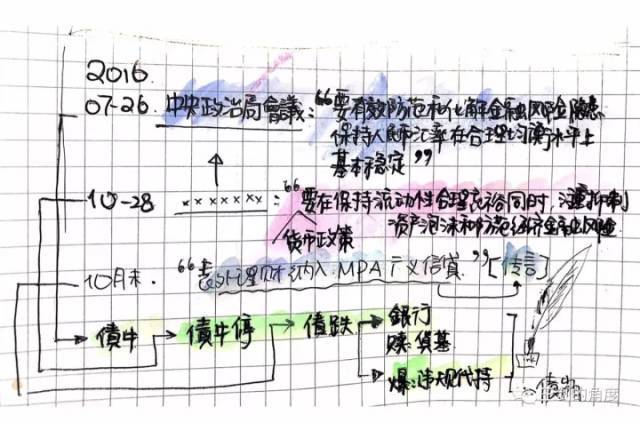 2016
07-26. 中央政治局會議：“要有效防范和化解金融风险隐患
保持人民币汇率在合理均衡水平上
基本稳定”
10-28 ×××××××：“要在保持流动性合理充裕同时，注重抑制
货币政策 资产泡沫和防范经济金融风险
10月末. “表外理财纳入MPA广义信贷”[传言]
債牛 債牛停 債跌 銀行
赎：货基
爆：违规代持
的角度